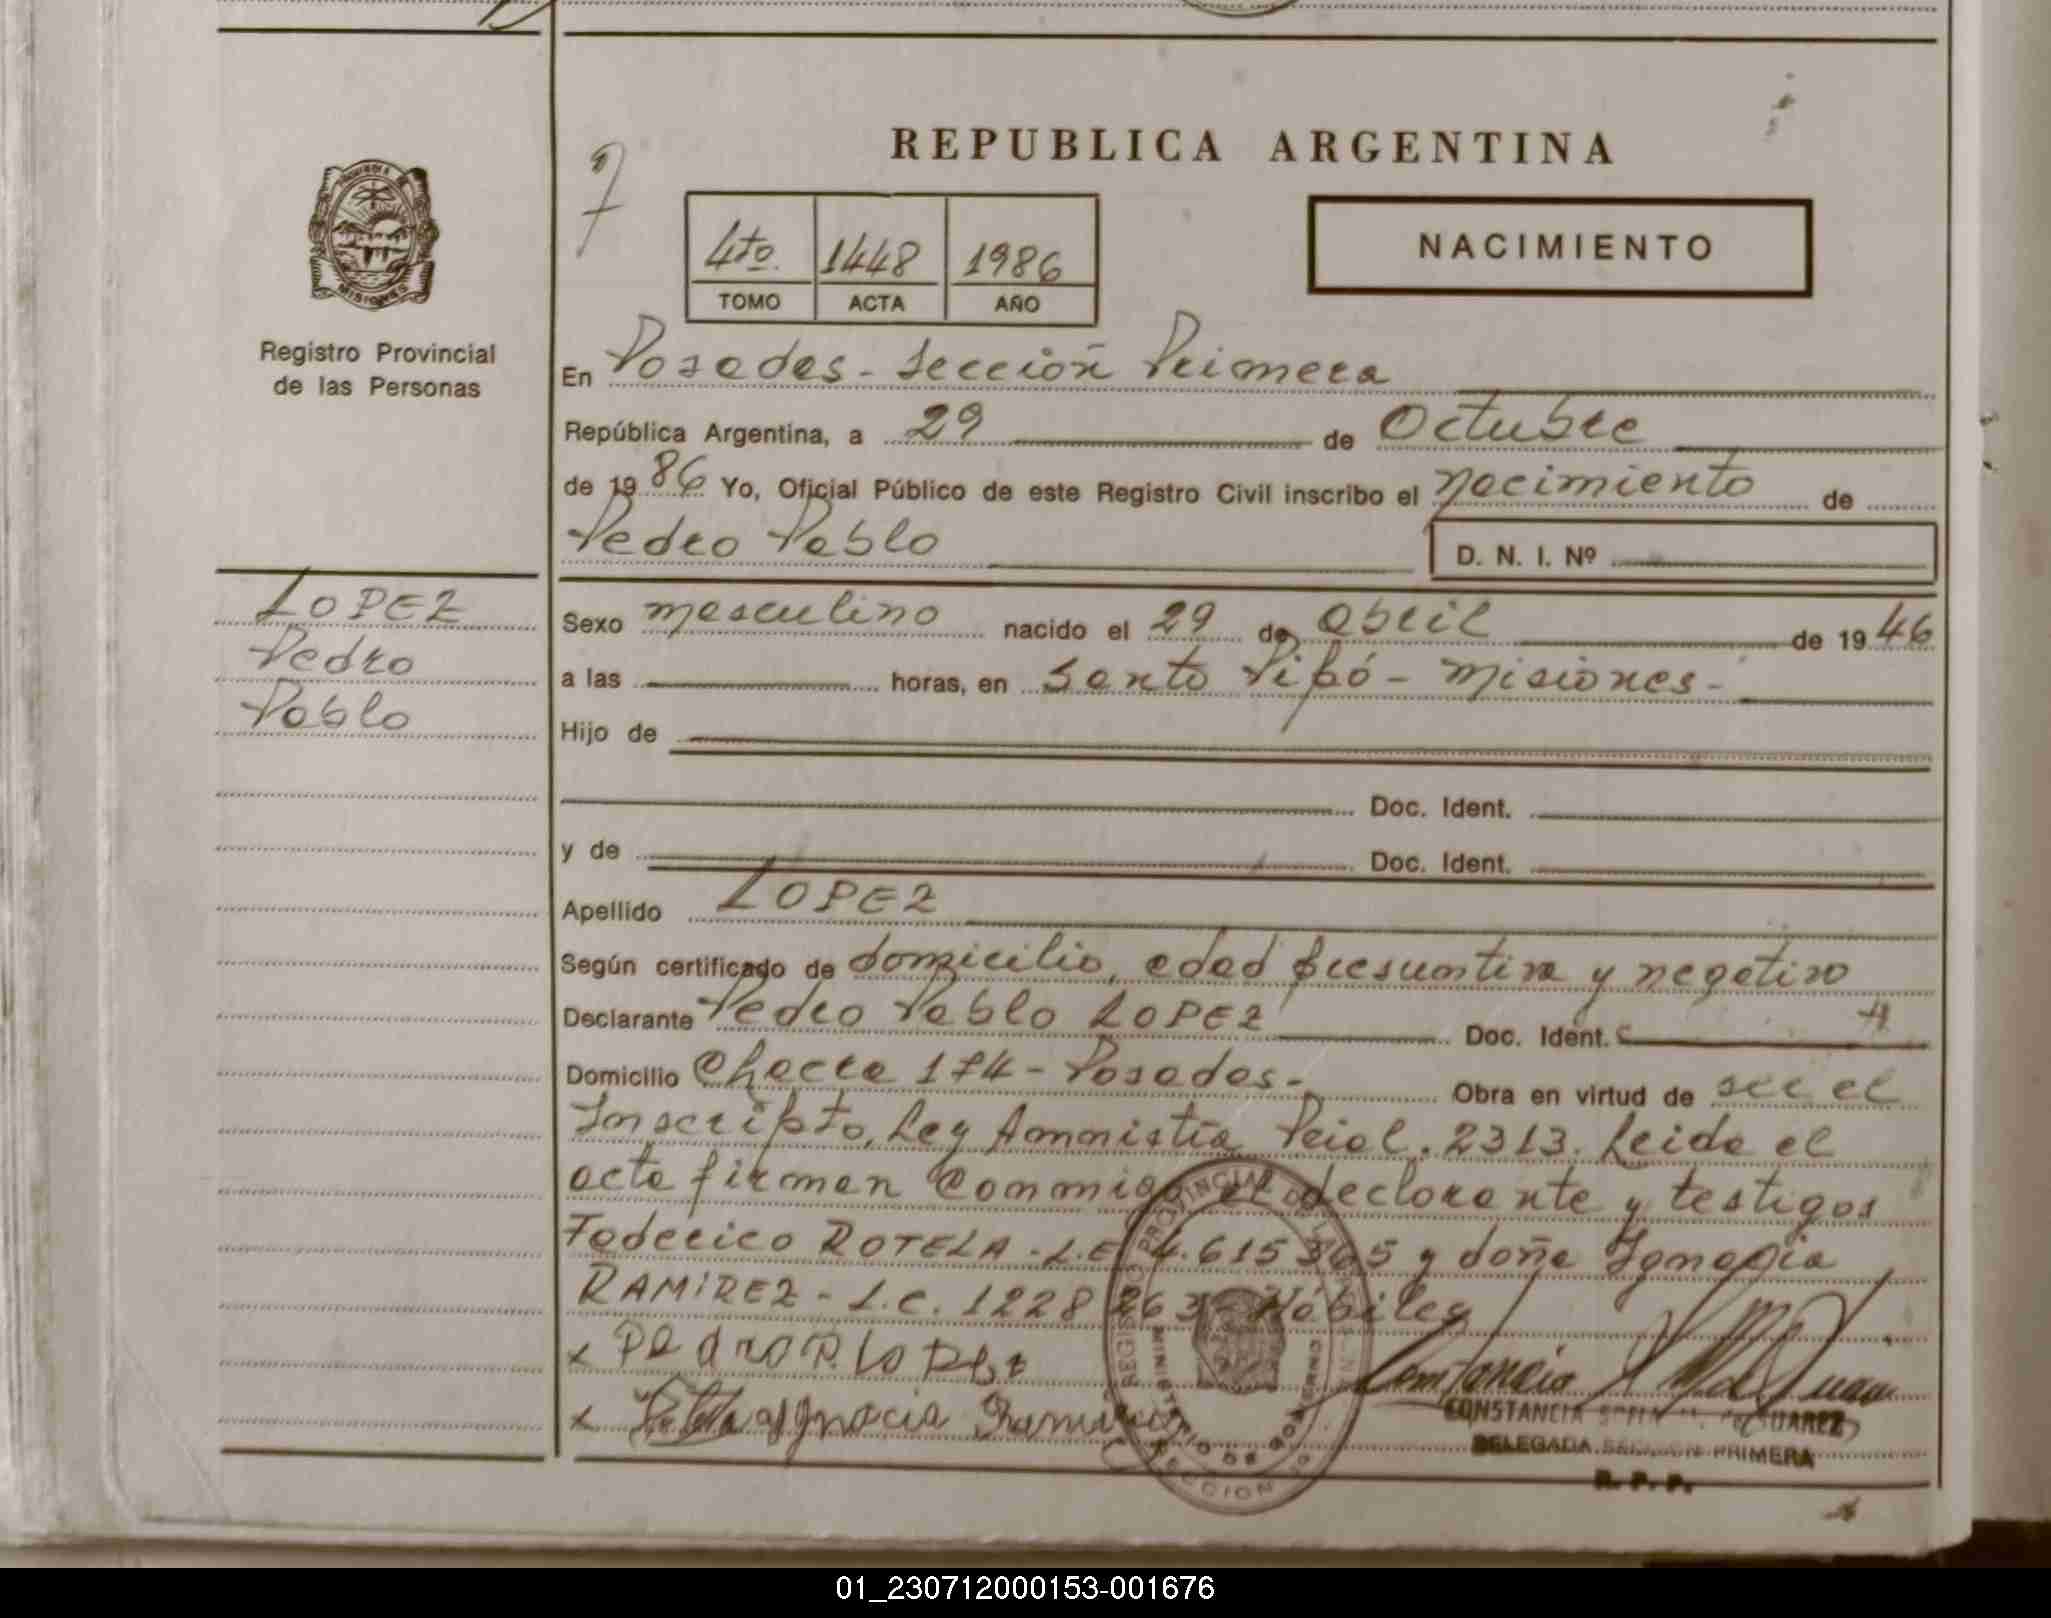 REPUBLICA ARGENTINA
4to. 1448 1986
TOMO ACTA AÑO
NACIMIENTO
MISIONES
Registro Provincial
de las Personas
En Posadas - Sección Primera
República Argentina, a 29 de Octubre
de 1986 Yo, Oficial Público de este Registro Civil inscribo el nacimiento de
Pedro Pablo
D. N. I. Nº
LOPEZ
Pedro
Pablo
Sexo masculino nacido el 29 de abril de 1946
a las horas, en Santo Pipó - Misiones -
Hijo de
Doc. Ident.
y de Doc. Ident.
Apellido LOPEZ
Según certificado de domicilio, edad presuntiva y negativo
Declarante Pedro Pablo LOPEZ Doc. Ident.
Domicilio Chacra 174 - Posadas - Obra en virtud de ser el
Inscripto, Ley Amnistía Pcial. 2313. Leida el
acta firman conmigo el declarante y testigos
Federico ROTELA - L.E. 4.615365 y doña Ignacia
RAMIREZ - L.C. 1228263 - Hábiles
x Pedro P. Lopez
x Ignacia Ramirez
REGISTRO PROVINCIAL DE LAS PERSONAS
MINISTERIO DE GOBIERNO
CONSTANCIA SUAREZ
DELEGADA SECCION PRIMERA
R. P. P.
01_230712000153-001676